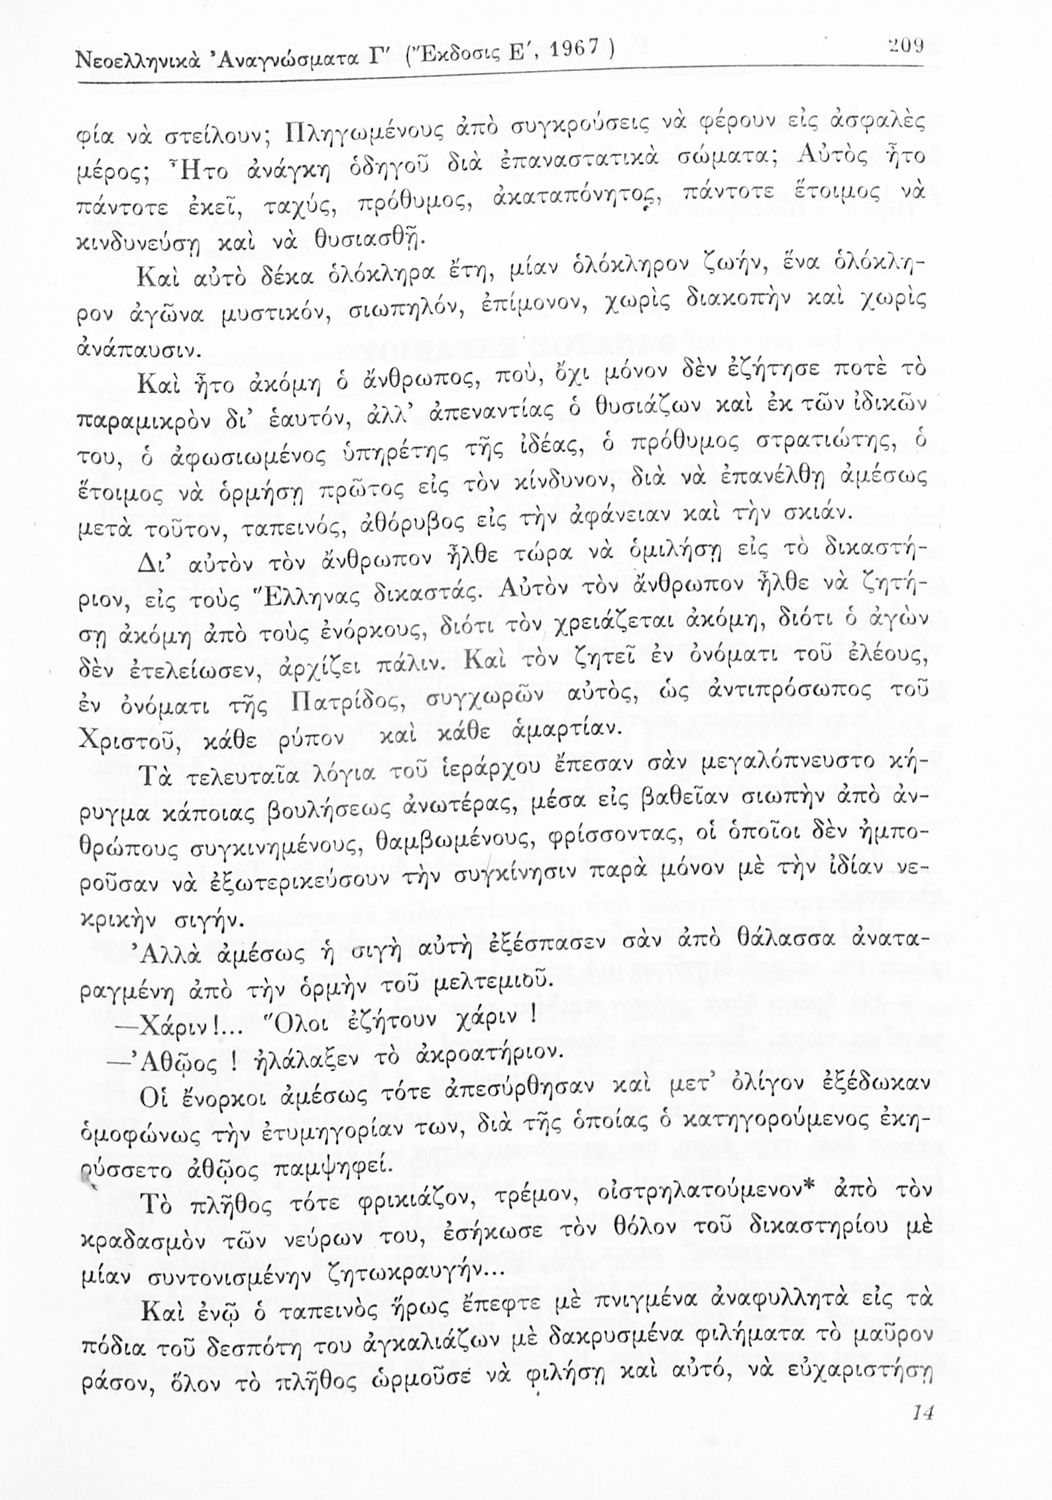 Νεοελληνικὰ Ἀναγνώσματα Γ' (Ἔκδοσις Ε', 1967 )
209
φία νὰ στείλουν; Πληγωμένους ἀπὸ συγκρούσεις νὰ φέρουν εἰς ἀσφαλὲς
μέρος; Ἦτο ἀνάγκη ὁδηγοῦ διὰ ἐπαναστατικὰ σώματα; Αὐτὸς ἦτο
πάντοτε ἐκεῖ, ταχύς, πρόθυμος, ἀκαταπόνητος, πάντοτε ἕτοιμος νὰ
κινδυνεύσῃ καὶ νὰ θυσιασθῇ.
Καὶ αὐτὸ δέκα ὁλόκληρα ἔτη, μίαν ὁλόκληρον ζωήν, ἕνα ὁλόκλη-
ρον ἀγῶνα μυστικόν, σιωπηλόν, ἐπίμονον, χωρὶς διακοπὴν καὶ χωρὶς
ἀνάπαυσιν.
Καὶ ἦτο ἀκόμη ὁ ἄνθρωπος, ποὺ, ὄχι μόνον δὲν ἐζήτησε ποτὲ τὸ
παραμικρὸν δι' ἑαυτόν, ἀλλ' ἀπεναντίας ὁ θυσιάζων καὶ ἐκ τῶν ἰδικῶν
του, ὁ ἀφωσιωμένος ὑπηρέτης τῆς ἰδέας, ὁ πρόθυμος στρατιώτης, ὁ
ἕτοιμος νὰ ὁρμήσῃ πρῶτος εἰς τὸν κίνδυνον, διὰ νὰ ἐπανέλθῃ ἀμέσως
μετὰ τοῦτον, ταπεινός, ἀθόρυβος εἰς τὴν ἀφάνειαν καὶ τὴν σκιάν.
Δι' αὐτὸν τὸν ἄνθρωπον ἦλθε τώρα νὰ ὁμιλήσῃ εἰς τὸ δικαστή-
ριον, εἰς τοὺς Ἕλληνας δικαστάς. Αὐτὸν τὸν ἄνθρωπον ἦλθε νὰ ζητή-
σῃ ἀκόμη ἀπὸ τοὺς ἐνόρκους, διότι τὸν χρειάζεται ἀκόμη, διότι ὁ ἀγὼν
δὲν ἐτελείωσεν, ἀρχίζει πάλιν. Καὶ τὸν ζητεῖ ἐν ὀνόματι τοῦ ἐλέους,
ἐν ὀνόματι τῆς Πατρίδος, συγχωρῶν αὐτὸς, ὡς ἀντιπρόσωπος τοῦ
Χριστοῦ, κάθε ρύπον καὶ κάθε ἁμαρτίαν.
Τὰ τελευταῖα λόγια τοῦ ἱεράρχου ἔπεσαν σὰν μεγαλόπνευστο κή-
ρυγμα κάποιας βουλήσεως ἀνωτέρας, μέσα εἰς βαθεῖαν σιωπὴν ἀπὸ ἀν-
θρώπους συγκινημένους, θαμβωμένους, φρίσσοντας, οἱ ὁποῖοι δὲν ἠμπο-
ροῦσαν νὰ ἐξωτερικεύσουν τὴν συγκίνησιν παρὰ μόνον μὲ τὴν ἰδίαν νε-
κρικὴν σιγήν.
Ἀλλὰ ἀμέσως ἡ σιγὴ αὐτὴ ἐξέσπασεν σὰν ἀπὸ θάλασσα ἀνατα-
ραγμένη ἀπὸ τὴν ὁρμὴν τοῦ μελτεμιοῦ.
—Χάριν!... Ὅλοι ἐζήτουν χάριν !
—Ἀθῷος ! ἠλάλαξεν τὸ ἀκροατήριον.
Οἱ ἔνορκοι ἀμέσως τότε ἀπεσύρθησαν καὶ μετ' ὀλίγον ἐξέδωκαν
ὁμοφώνως τὴν ἐτυμηγορίαν των, διὰ τῆς ὁποίας ὁ κατηγορούμενος ἐκη-
ρύσσετο ἀθῷος παμψηφεί.
Τὸ πλῆθος τότε φρικιάζον, τρέμον, οἰστρηλατούμενον* ἀπὸ τὸν
κραδασμὸν τῶν νεύρων του, ἐσήκωσε τὸν θόλον τοῦ δικαστηρίου μὲ
μίαν συντονισμένην ζητωκραυγήν...
Καὶ ἐνῷ ὁ ταπεινὸς ἥρως ἔπεφτε μὲ πνιγμένα ἀναφυλλητὰ εἰς τὰ
πόδια τοῦ δεσπότη του ἀγκαλιάζων μὲ δακρυσμένα φιλήματα τὸ μαῦρον
ράσον, ὅλον τὸ πλῆθος ὡρμοῦσε νὰ φιλήσῃ καὶ αὐτό, νὰ εὐχαριστήσῃ
14